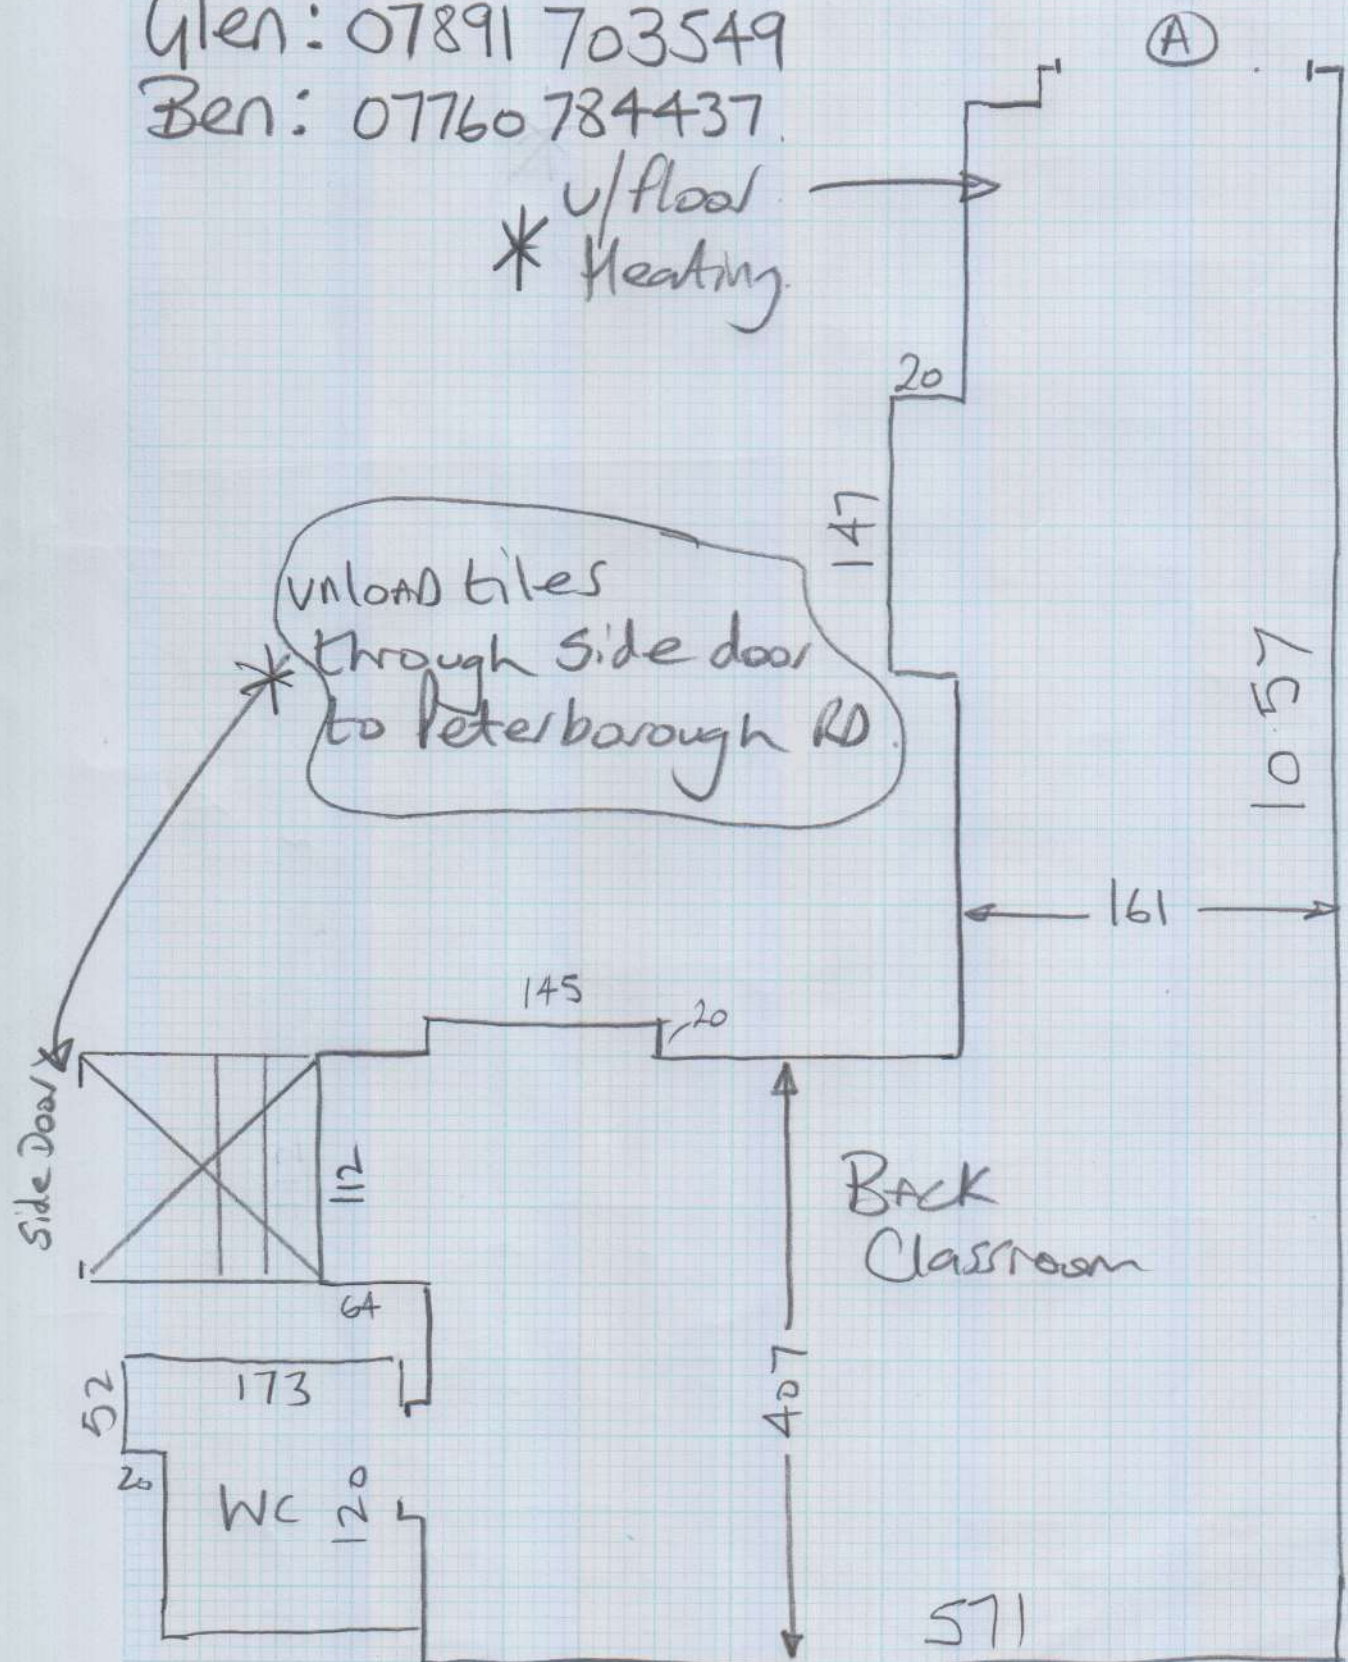 Glen: 07891 703549
Ben: 07760 784437.
A
* u/floor
Heating.
20
147
unLOAD tiles
through Side door
to Peterborough RD.
*
10.57
161
145
20
Side Door
112
BACK
Classroom
64
173
52
407
20
WC
120
571